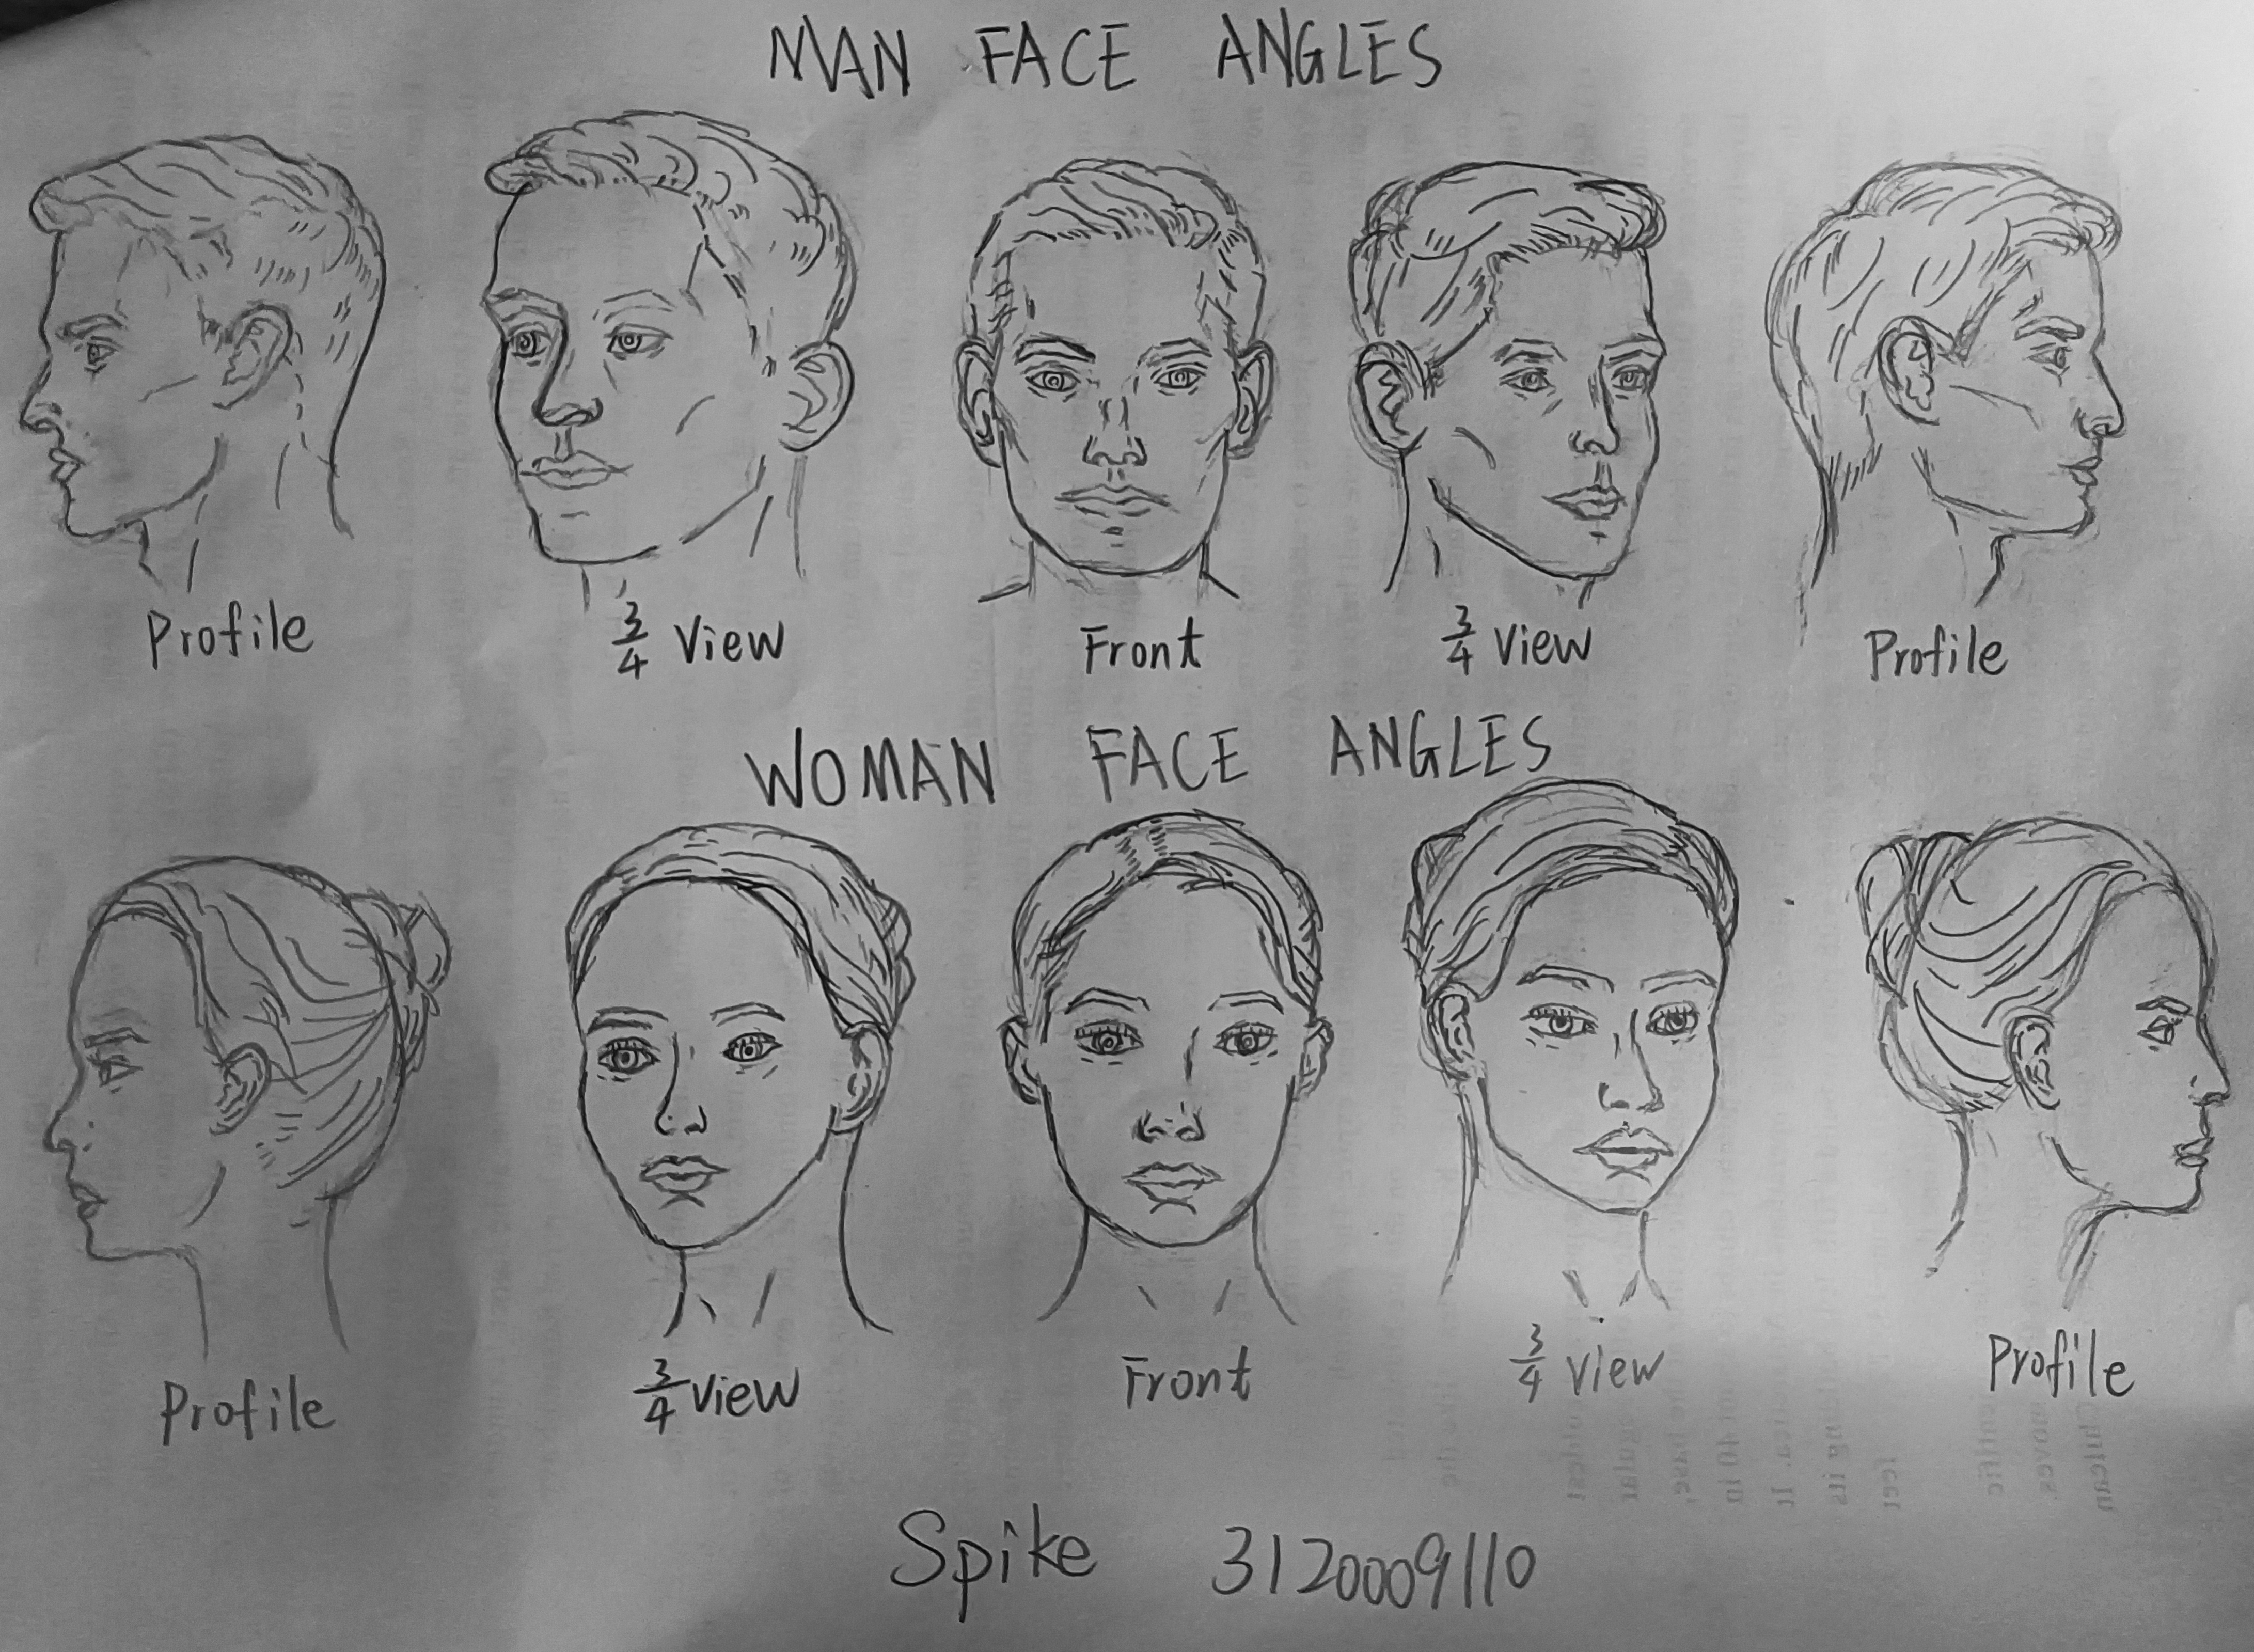 MAN FACE ANGLES
Profile 3/4 View Front 3/4 View Profile
WOMAN FACE ANGLES
Profile 3/4 View Front 3/4 View Profile
Spike 3120009110